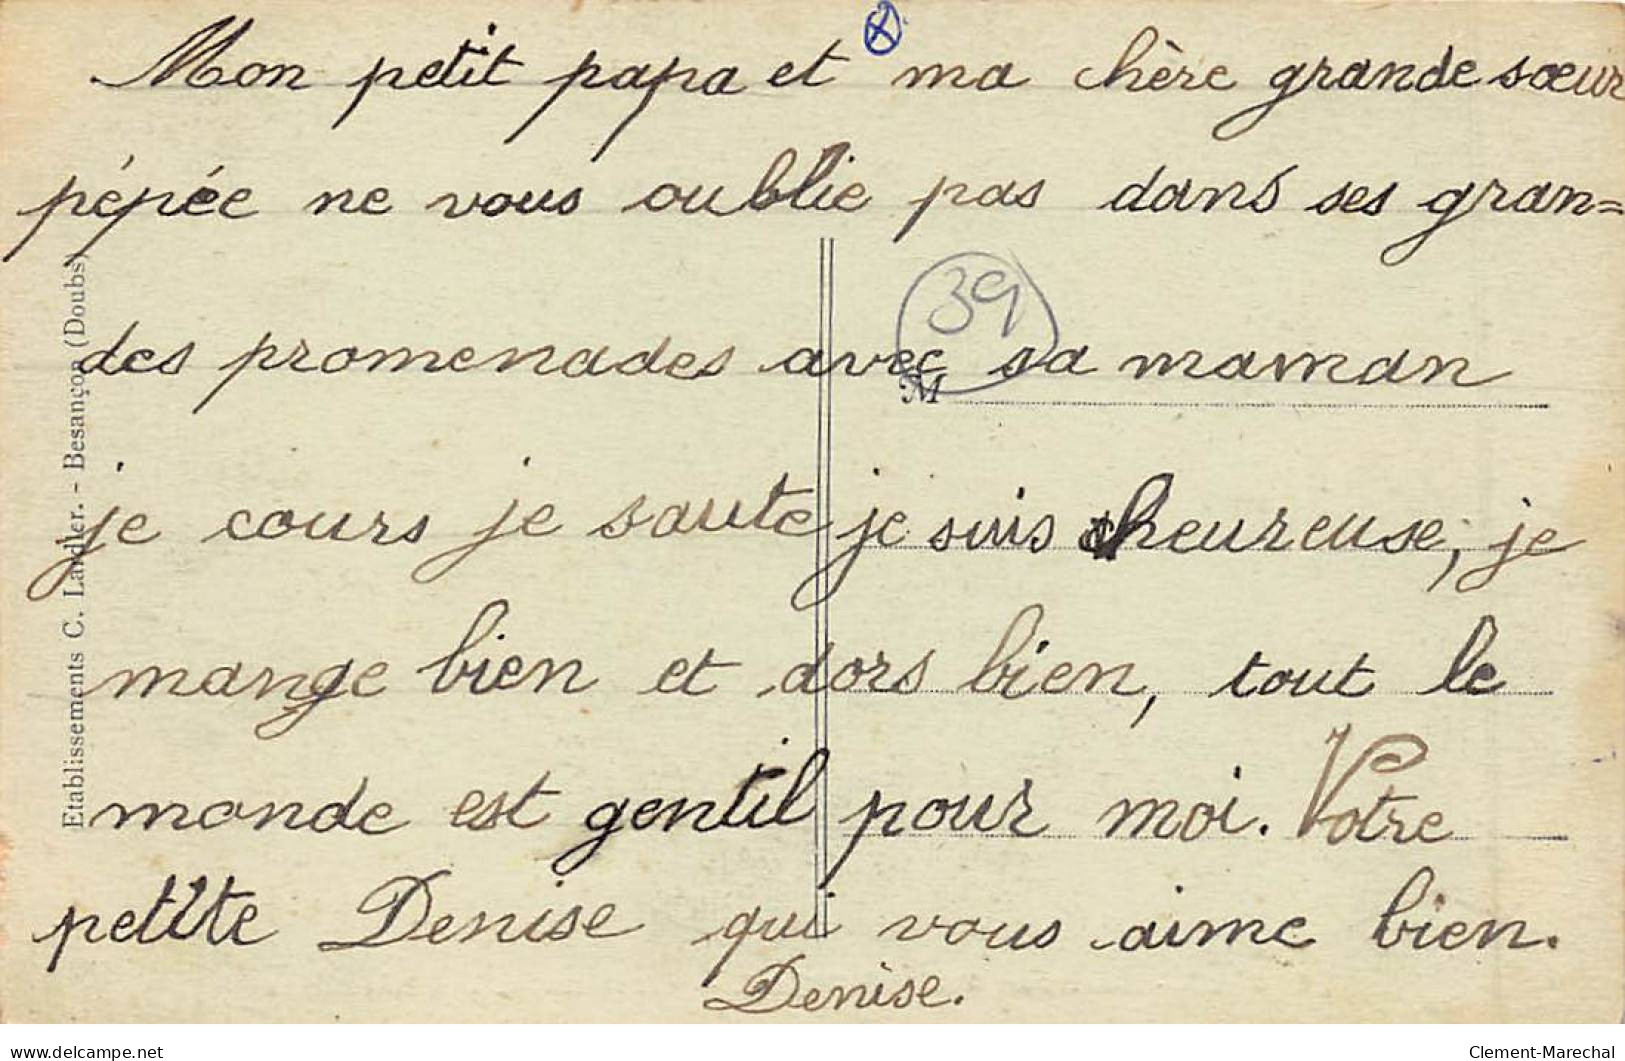 Mon petit papa et ma chère grande sœur
pépée ne vous oublie pas dans ses gran=
des promenades avec sa maman
je cours je saute je suis heureuse, je
mange bien et dors bien, tout le
monde est gentil pour moi. Votre
petite Denise qui vous aime bien.
Denise.
39
M
Etablissements C. Lardier. - Besançon (Doubs)
delcampe.net
Clement-Marechal